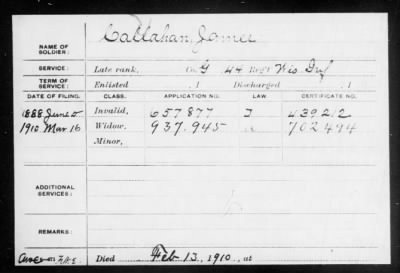 Callahan, James
NAME OF SOLDIER:
SERVICE: Late rank, Co. G, 44 Reg't Wis. Inf
TERM OF SERVICE: Enlisted 1 Discharged , 1
DATE OF FILING. CLASS. APPLICATION NO. LAW. CERTIFICATE NO.
1888 June 5 Invalid, 657877 439212
1910 Mar 16 Widow, 937.945 702494
Minor,
ADDITIONAL SERVICES:
REMARKS:
Died Feb 13, 1910, at